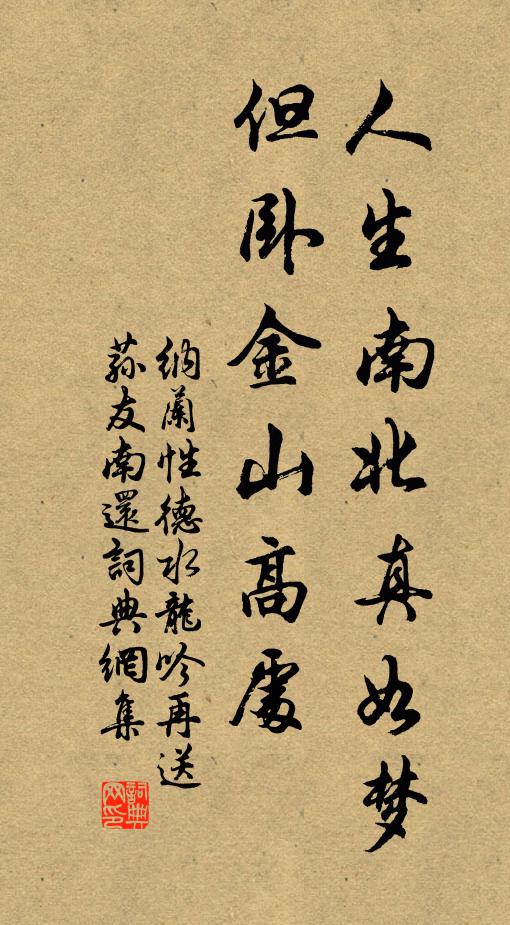 人生南北真如梦
但卧金山高處
纳蘭性德水龍吟再送
荪友南還詞典網集
詞典网印